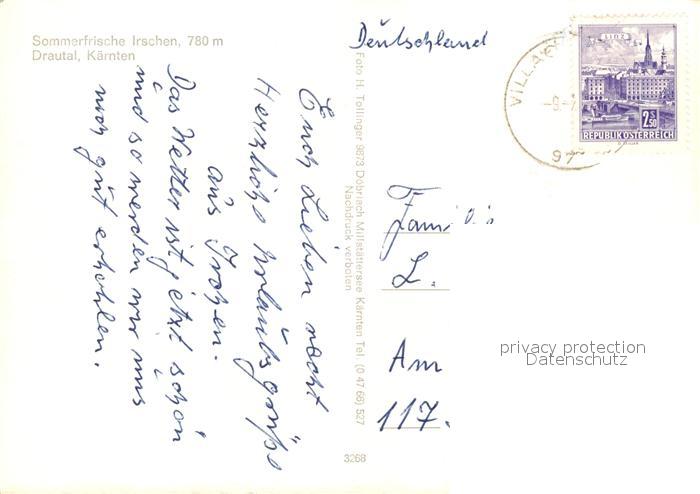 Sommerfrische Irschen, 780 m
Drautal, Kärnten
Euch Lieben
Herzliche Urlaubsgrüße
aus Irschen.
Das Wetter ist jetzt schön
und so werden wir uns
noch gut erholen.
Foto H. Tollinger 9873 Döbriach Millstättersee Kärnten Tel. (0 47 66) 527
Nachdruck verboten
3268
Deutschland
L.
Am
117.
VILLA
-9.-7
97
LINZ
2 S 50
REPUBLIK ÖSTERREICH
privacy protection
Datenschutz